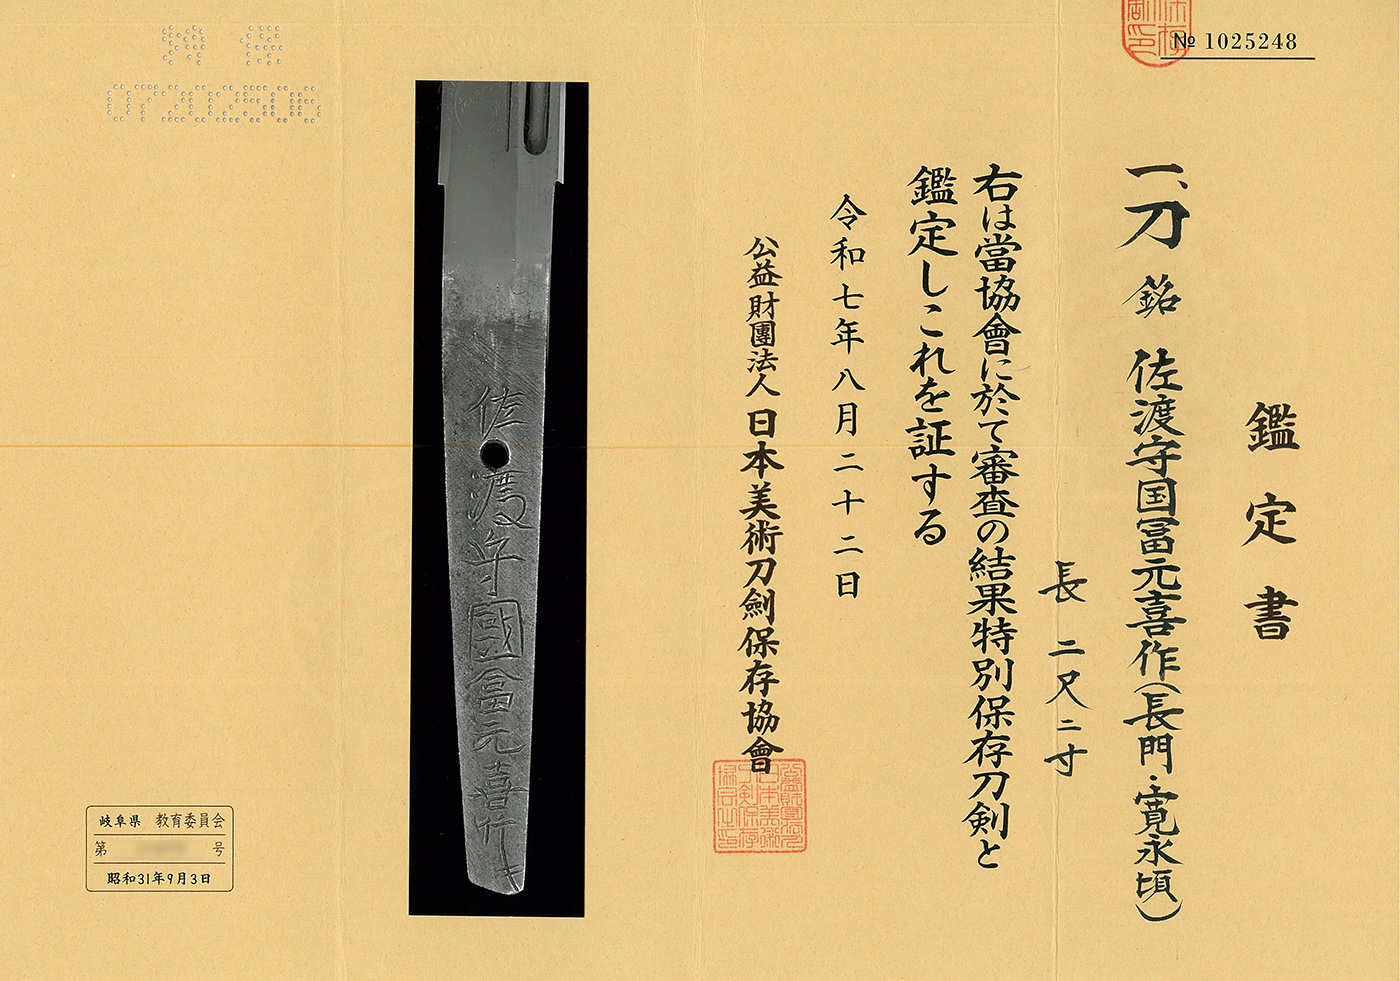 № 1025248
鑑定書
一、刀 銘 佐渡守国冨元喜作(長門・寛永頃)
長 二尺二寸
右は當協會に於て審査の結果特別保存刀剣と
鑑定しこれを証する
令和七年八月二十二日
公益財團法人 日本美術刀劍保存協會
佐渡守國富元喜作
07202506
岐阜県 教育委員会
第 号
昭和31年9月3日